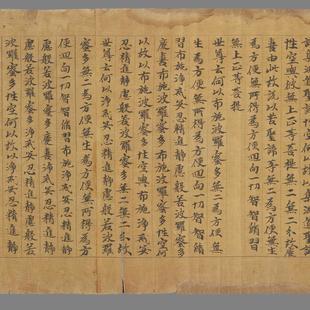 性空與無上正等菩提無二無二分故慶
喜由此故說以苦聖諦等無二為方便無生
為方便無所得為方便迴向一切智智修習
無上正等菩提
世尊云何以布施波羅蜜多無二為方便無
生為方便無所得為方便迴向一切智智修
習布施淨戒安忍精進靜慮般若波羅蜜多
慶喜布施波羅蜜多布施波羅蜜多性空何
以故以布施波羅蜜多性空與布施淨戒安
忍精進靜慮般若波羅蜜多無二無二分故
世尊云何以淨戒安忍精進靜慮般若波羅
蜜多無二為方便無生為方便無所得為方
便迴向一切智智修習布施淨戒安忍精進靜
慮般若波羅蜜多慶喜淨戒安忍精進靜
慮般若波羅蜜多淨戒安忍精進靜慮般若
波羅蜜多性空何以故以淨戒安忍精進靜